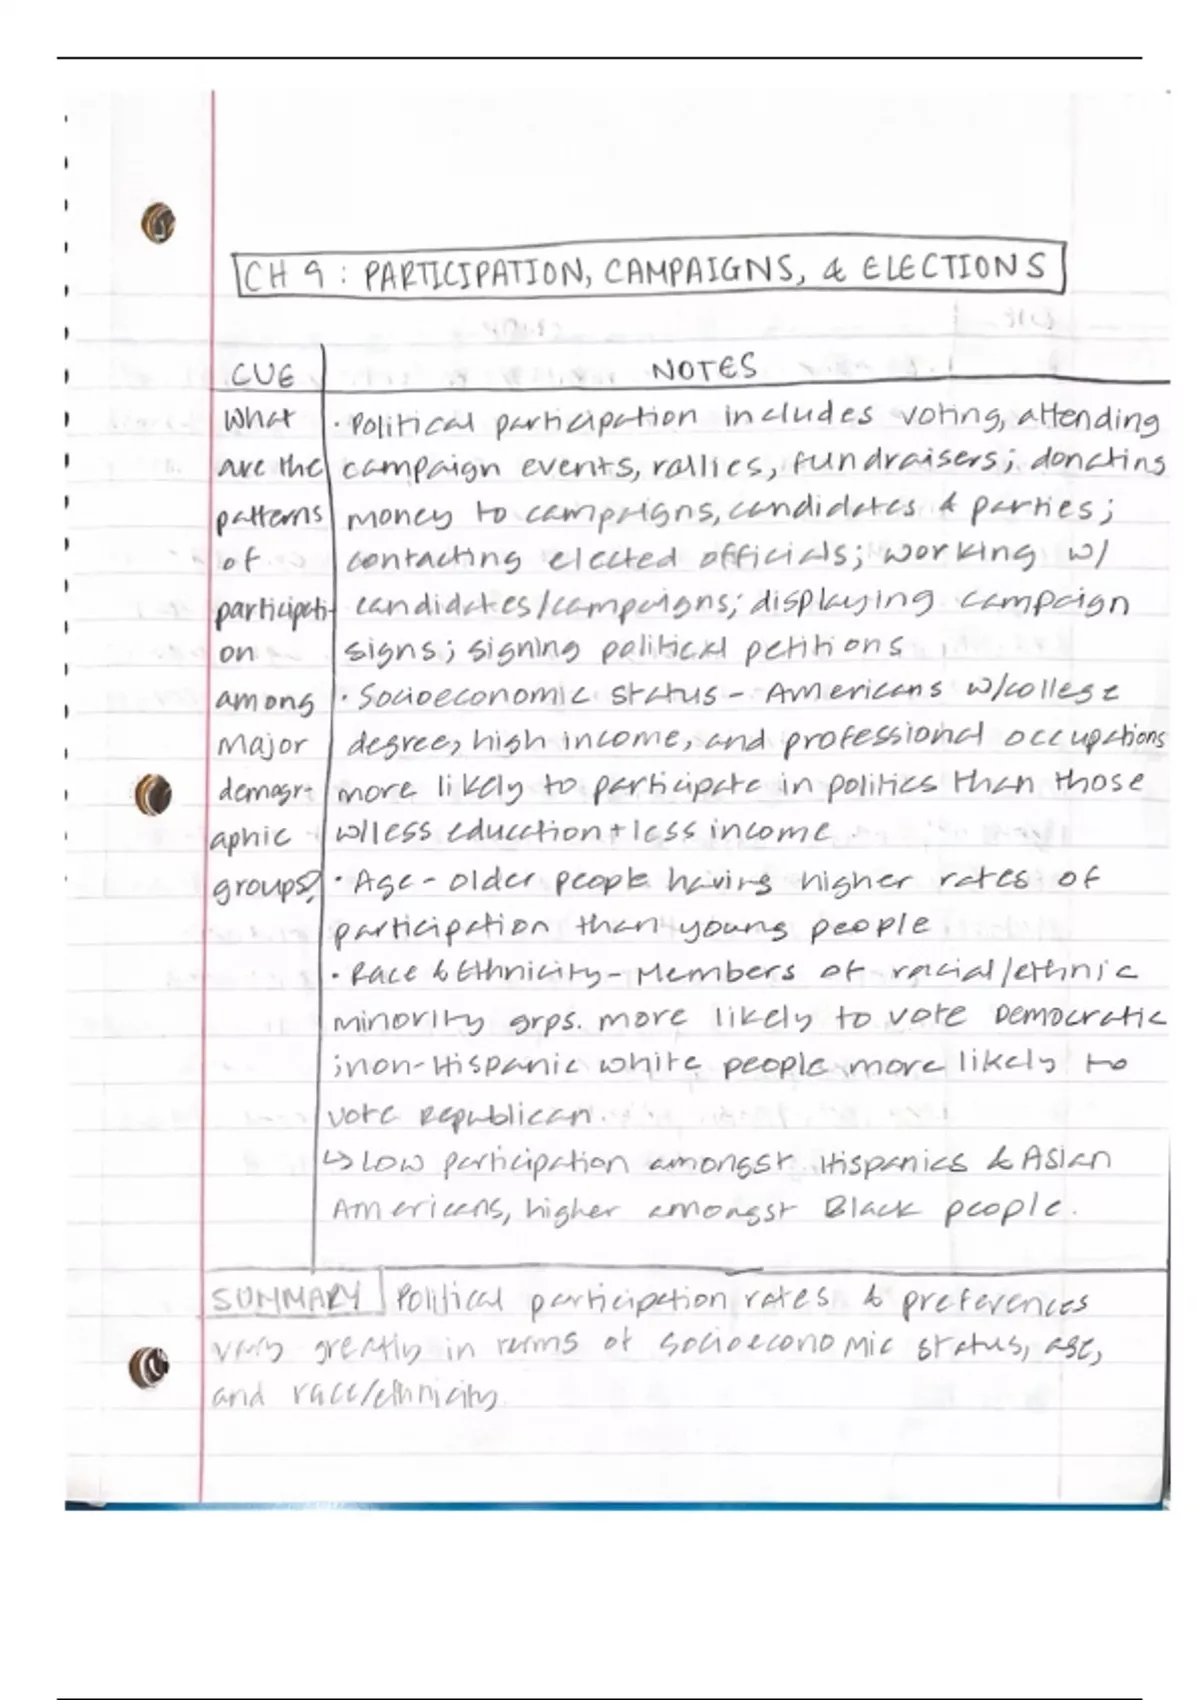 CH 9: PARTICIPATION, CAMPAIGNS, & ELECTIONS
CUE
What
are the
patterns
of
participati-
on
among
major
demogr-
aphic
groups?
NOTES
· Political participation includes voting, attending
campaign events, rallies, fundraisers; donating
money to campaigns, candidates & parties;
contacting elected officials; working w/
candidates/campaigns; displaying campaign
signs; signing political petitions
· Socioeconomic status - Americans w/college
degree, high income, and professional occupations
more likely to participate in politics than those
w/less education + less income.
· Age - older people having higher rates of
participation than young people
· Race & Ethnicity - Members of racial/ethnic
minority grps. more likely to vote Democratic
; non-Hispanic white people more likely to
vote Republican.
↳ Low participation amongst Hispanics & Asian
Americans, higher amongst Black people.
SUMMARY Political participation rates & preferences
vary greatly in terms of socioeconomic status, age,
and race/ethnicity.